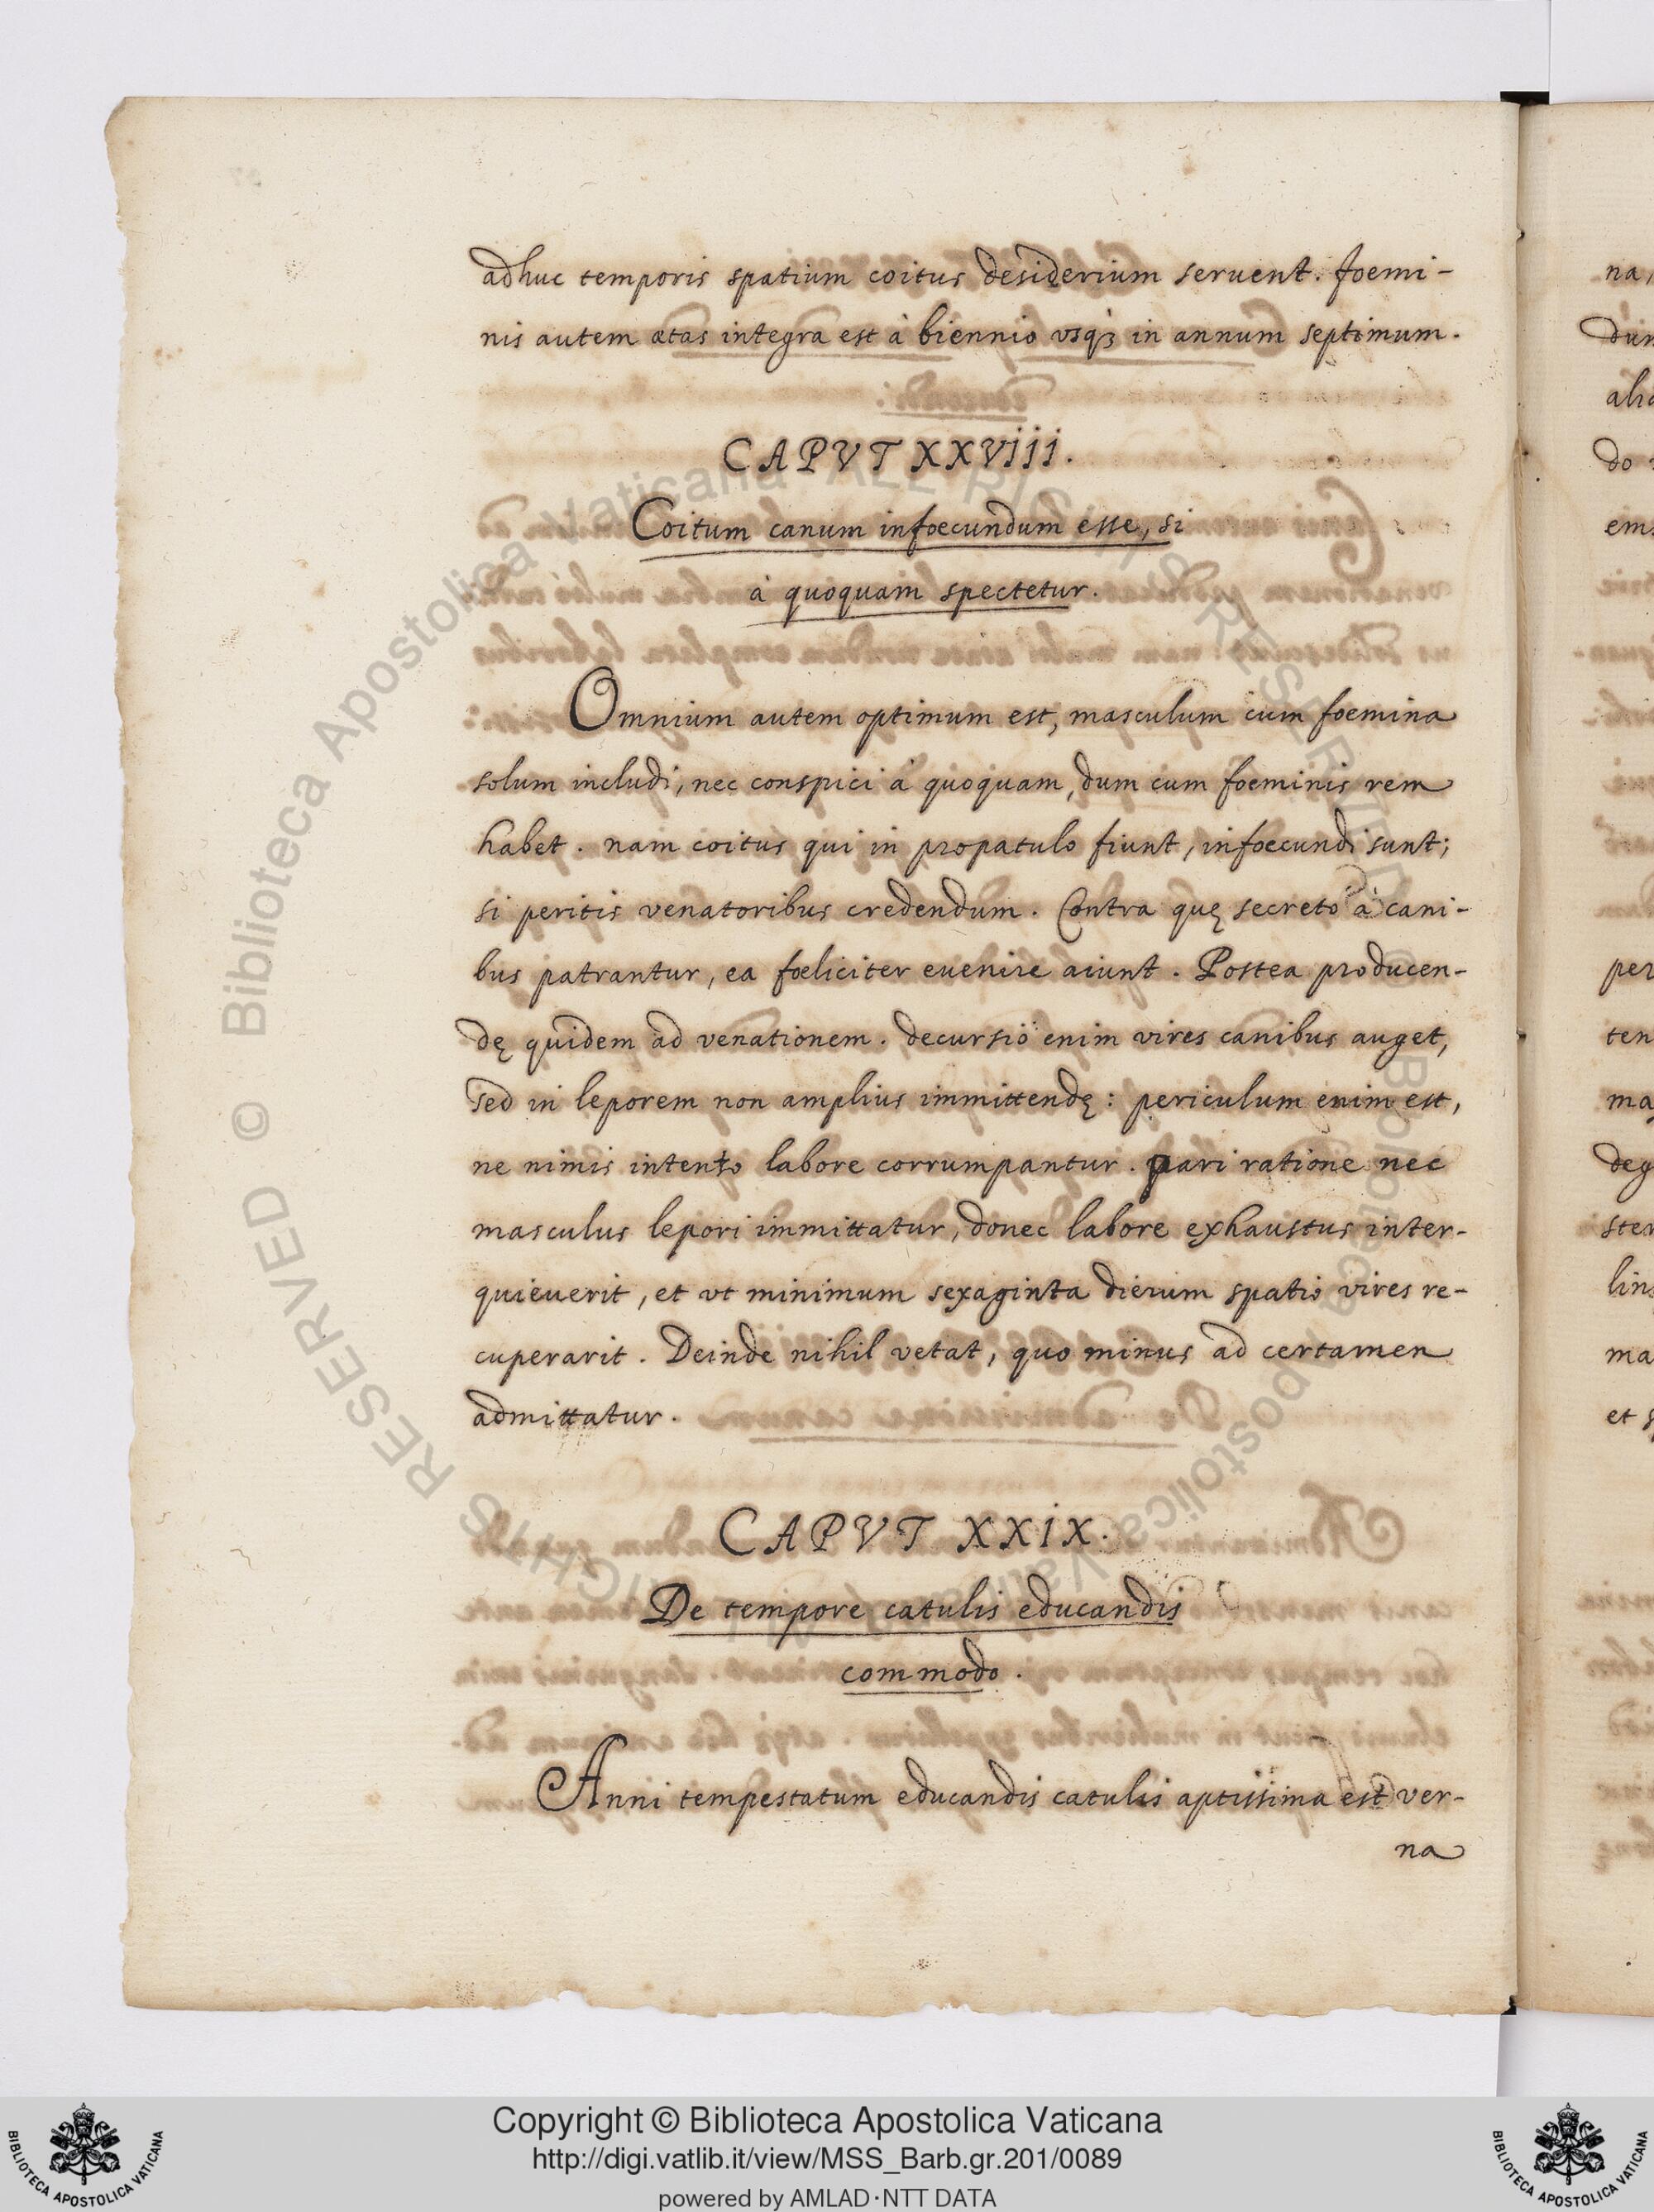 adhuc temporis spatium coitus desiderium seruent. foemi-
nis autem ætas integra est à biennio vsqꝫ in annum septimum.
CAPVT XXViij.
Coitum canum infoecundum esse, si
à quoquam spectetur.
Omnium autem optimum est, masculum cum foemina
solum includi, nec conspici à quoquam, dum cum foeminis rem
habet. nam coitus qui in propatulo fiunt, infoecundi sunt;
si peritis venatoribus credendum. Contra quę secreto à cani-
bus patrantur, ea fœliciter euenire aiunt. Postea producen-
dę quidem ad venationem. decursio enim vires canibus auget,
sed in leporem non amplius immittendę: periculum enim est,
ne nimis intento labore corrumpantur. pari ratione nec
masculus lepori immittatur, donec labore exhaustus inter-
quieuerit, et vt minimum sexaginta dierum spatio vires re-
cuperarit. Deinde nihil vetat, quo minus ad certamen
admittatur.
CAPVT XXIX.
De tempore catulis educandis
commodo.
Anni tempestatum educandis catulis aptissima est ver-
na
na,
dum
do
per
ten
ma
deg
ster
lins
ma
et s
© Biblioteca Apostolica Vaticana ALL RIGHTS RESERVED © Biblioteca Apostolica Vaticana ALL RIGHTS RESERVED
Copyright © Biblioteca Apostolica Vaticana
http://digi.vatlib.it/view/MSS_Barb.gr.201/0089
powered by AMLAD·NTT DATA
BIBLIOTECA APOSTOLICA VATICANA
BIBLIOTECA APOSTOLICA VATICANA